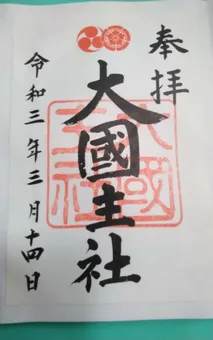 奉拝
大國主社
大國主社
令和三年三月十四日